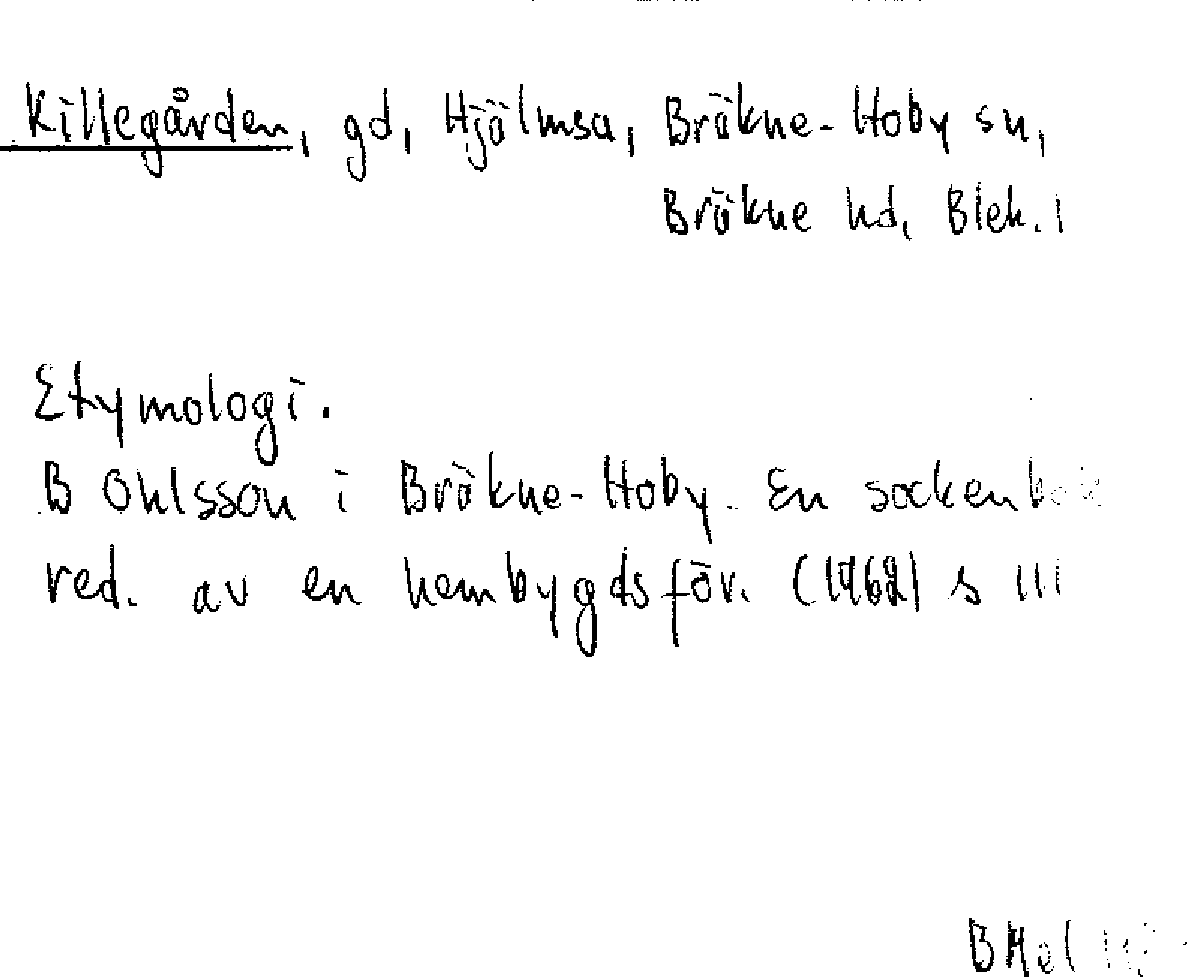 Killegården, gd, Hjälmsa, Bräkne-Hoby sn,
Bräkne hd, Blek. l
Etymologi.
B Ohlsson i Bräkne-Hoby. En sockenbok
red. av en hembygdsför. (1962) s 111